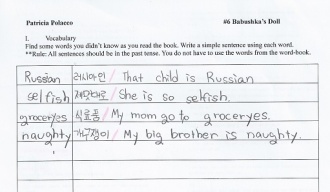 Patricia Polacco #6 Babushka's Doll
I. Vocabulary
Find some words you didn't know as you read the book. Write a simple sentence using each word.
**Rule: All sentences should be in the past tense. You do not have to use the words from the word-book.
Russian 러시아인 / That child is Russian
selfish 제멋대로 / She is so selfish.
groceryes 식료품 / My mom go to groceryes.
naughty 개구쟁이 / My big brother is naughty.